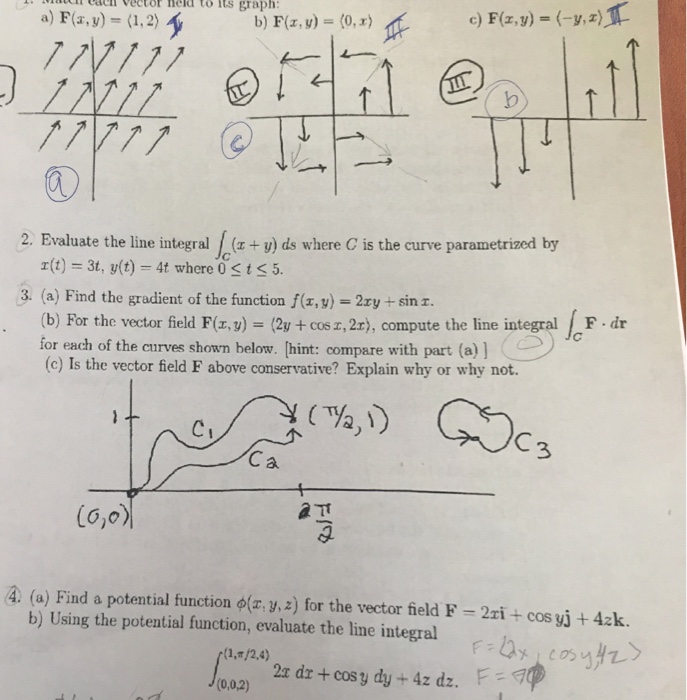 1. Match each vector field to its graph:
a) F(x, y) = ⟨1, 2⟩ I b) F(x, y) = ⟨0, x⟩ III c) F(x, y) = ⟨−y, x⟩ II
II III
b
c
a
2. Evaluate the line integral ∫_C (x + y) ds where C is the curve parametrized by
x(t) = 3t, y(t) = 4t where 0 ≤ t ≤ 5.
3. (a) Find the gradient of the function f(x, y) = 2xy + sin x.
(b) For the vector field F(x, y) = ⟨2y + cos x, 2x⟩, compute the line integral ∫_C F · dr
for each of the curves shown below. [hint: compare with part (a) ]
(c) Is the vector field F above conservative? Explain why or why not.
1 C1 (π/2, 1) C3
C2
(0,0) π/2
4. (a) Find a potential function ϕ(x, y, z) for the vector field F = 2xi + cos yj + 4zk.
b) Using the potential function, evaluate the line integral
F = ⟨2x, cosy, 4z⟩
∫_(0,0,2)^(1,π/2,4) 2x dx + cos y dy + 4z dz. F = ∇ϕ